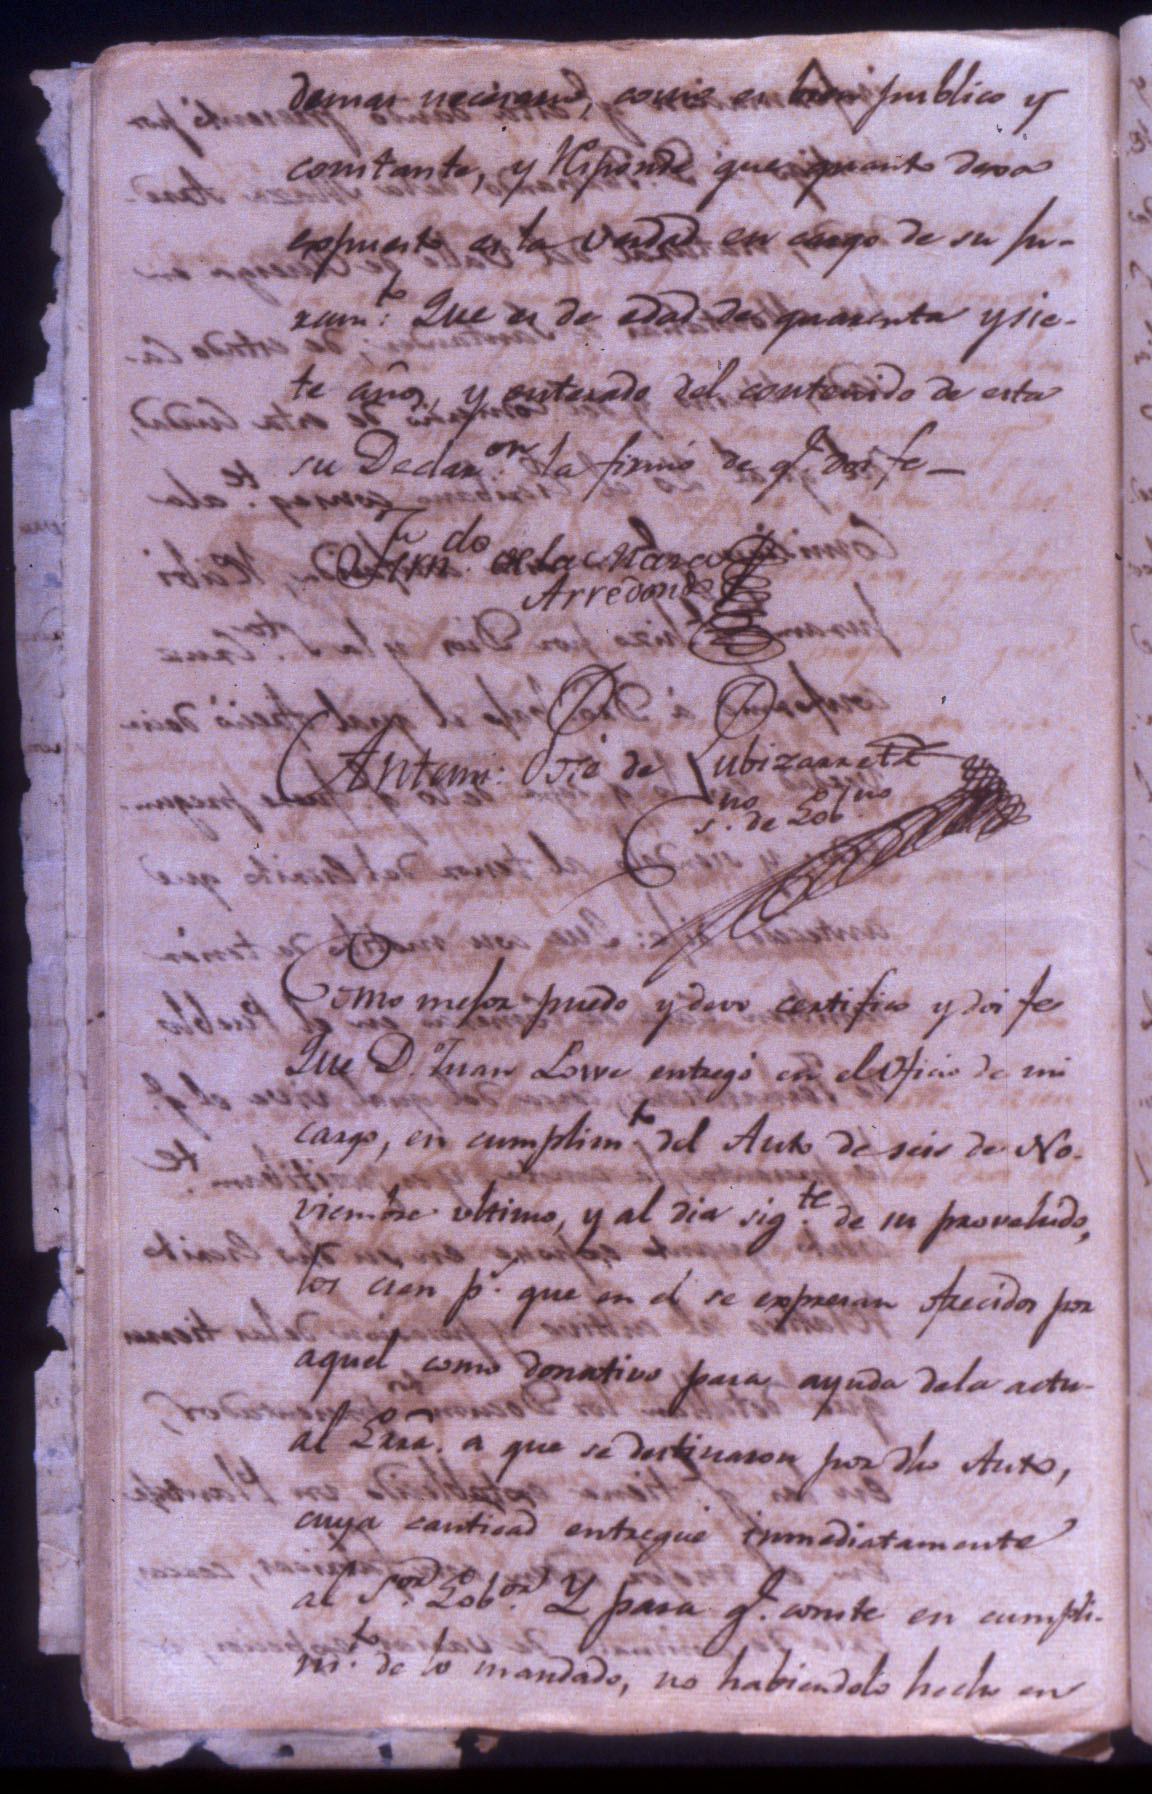 demas necesario, como es bien publico y
constante, y Responde que quanto deva
expuesto es la verdad en cargo de su ju-
ram.to Que es de edad de quarenta y sie-
te años, y enterado del contenido de esta
su Declar.on la firmó de q.e doi fe_
Fern.do de la Maza
Arredondo
Antoni: Jose de Lubizarreta
s.no de Gob.no
Como mejor puedo y devo certifico y doi fe
Que D.n Juan Lowe entregó en el Oficio de mi
cargo, en cumplim.to del Auto de seis de No-
viembre ultimo, y al dia sig.te de su provehido,
los cien p.s que en el se expresan ofrecidos por
aquel como donativo para ayuda dela actu-
al Grra. a que se destinaron por dho Auto,
cuya cantidad entregué inmediatamente
al S.or Gob.or Y para q.e conste en cumpli-
m.to de lo mandado, no habiendolo hecho en